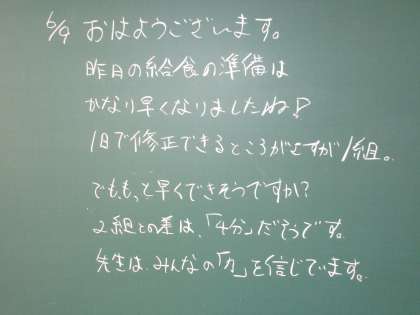 6/9 おはようございます。
昨日の給食の準備は
かなり早くなりましたね!
1日で修正できるところがさすが1組。
でも、もっと早くできそうですか?
2組との差は、「4分」だそうです。
先生は、みんなの「力」を信じています。